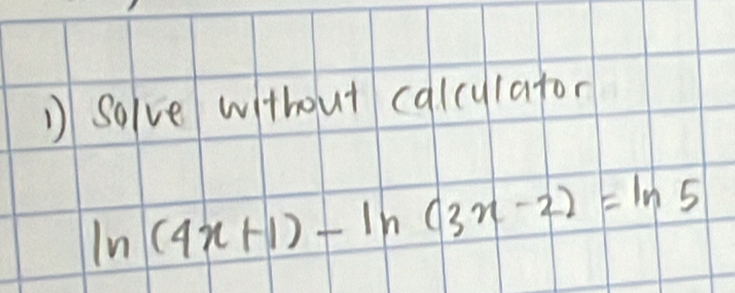 1) Solve without calculator
ln (4x+1) - ln (3x-2) = ln 5